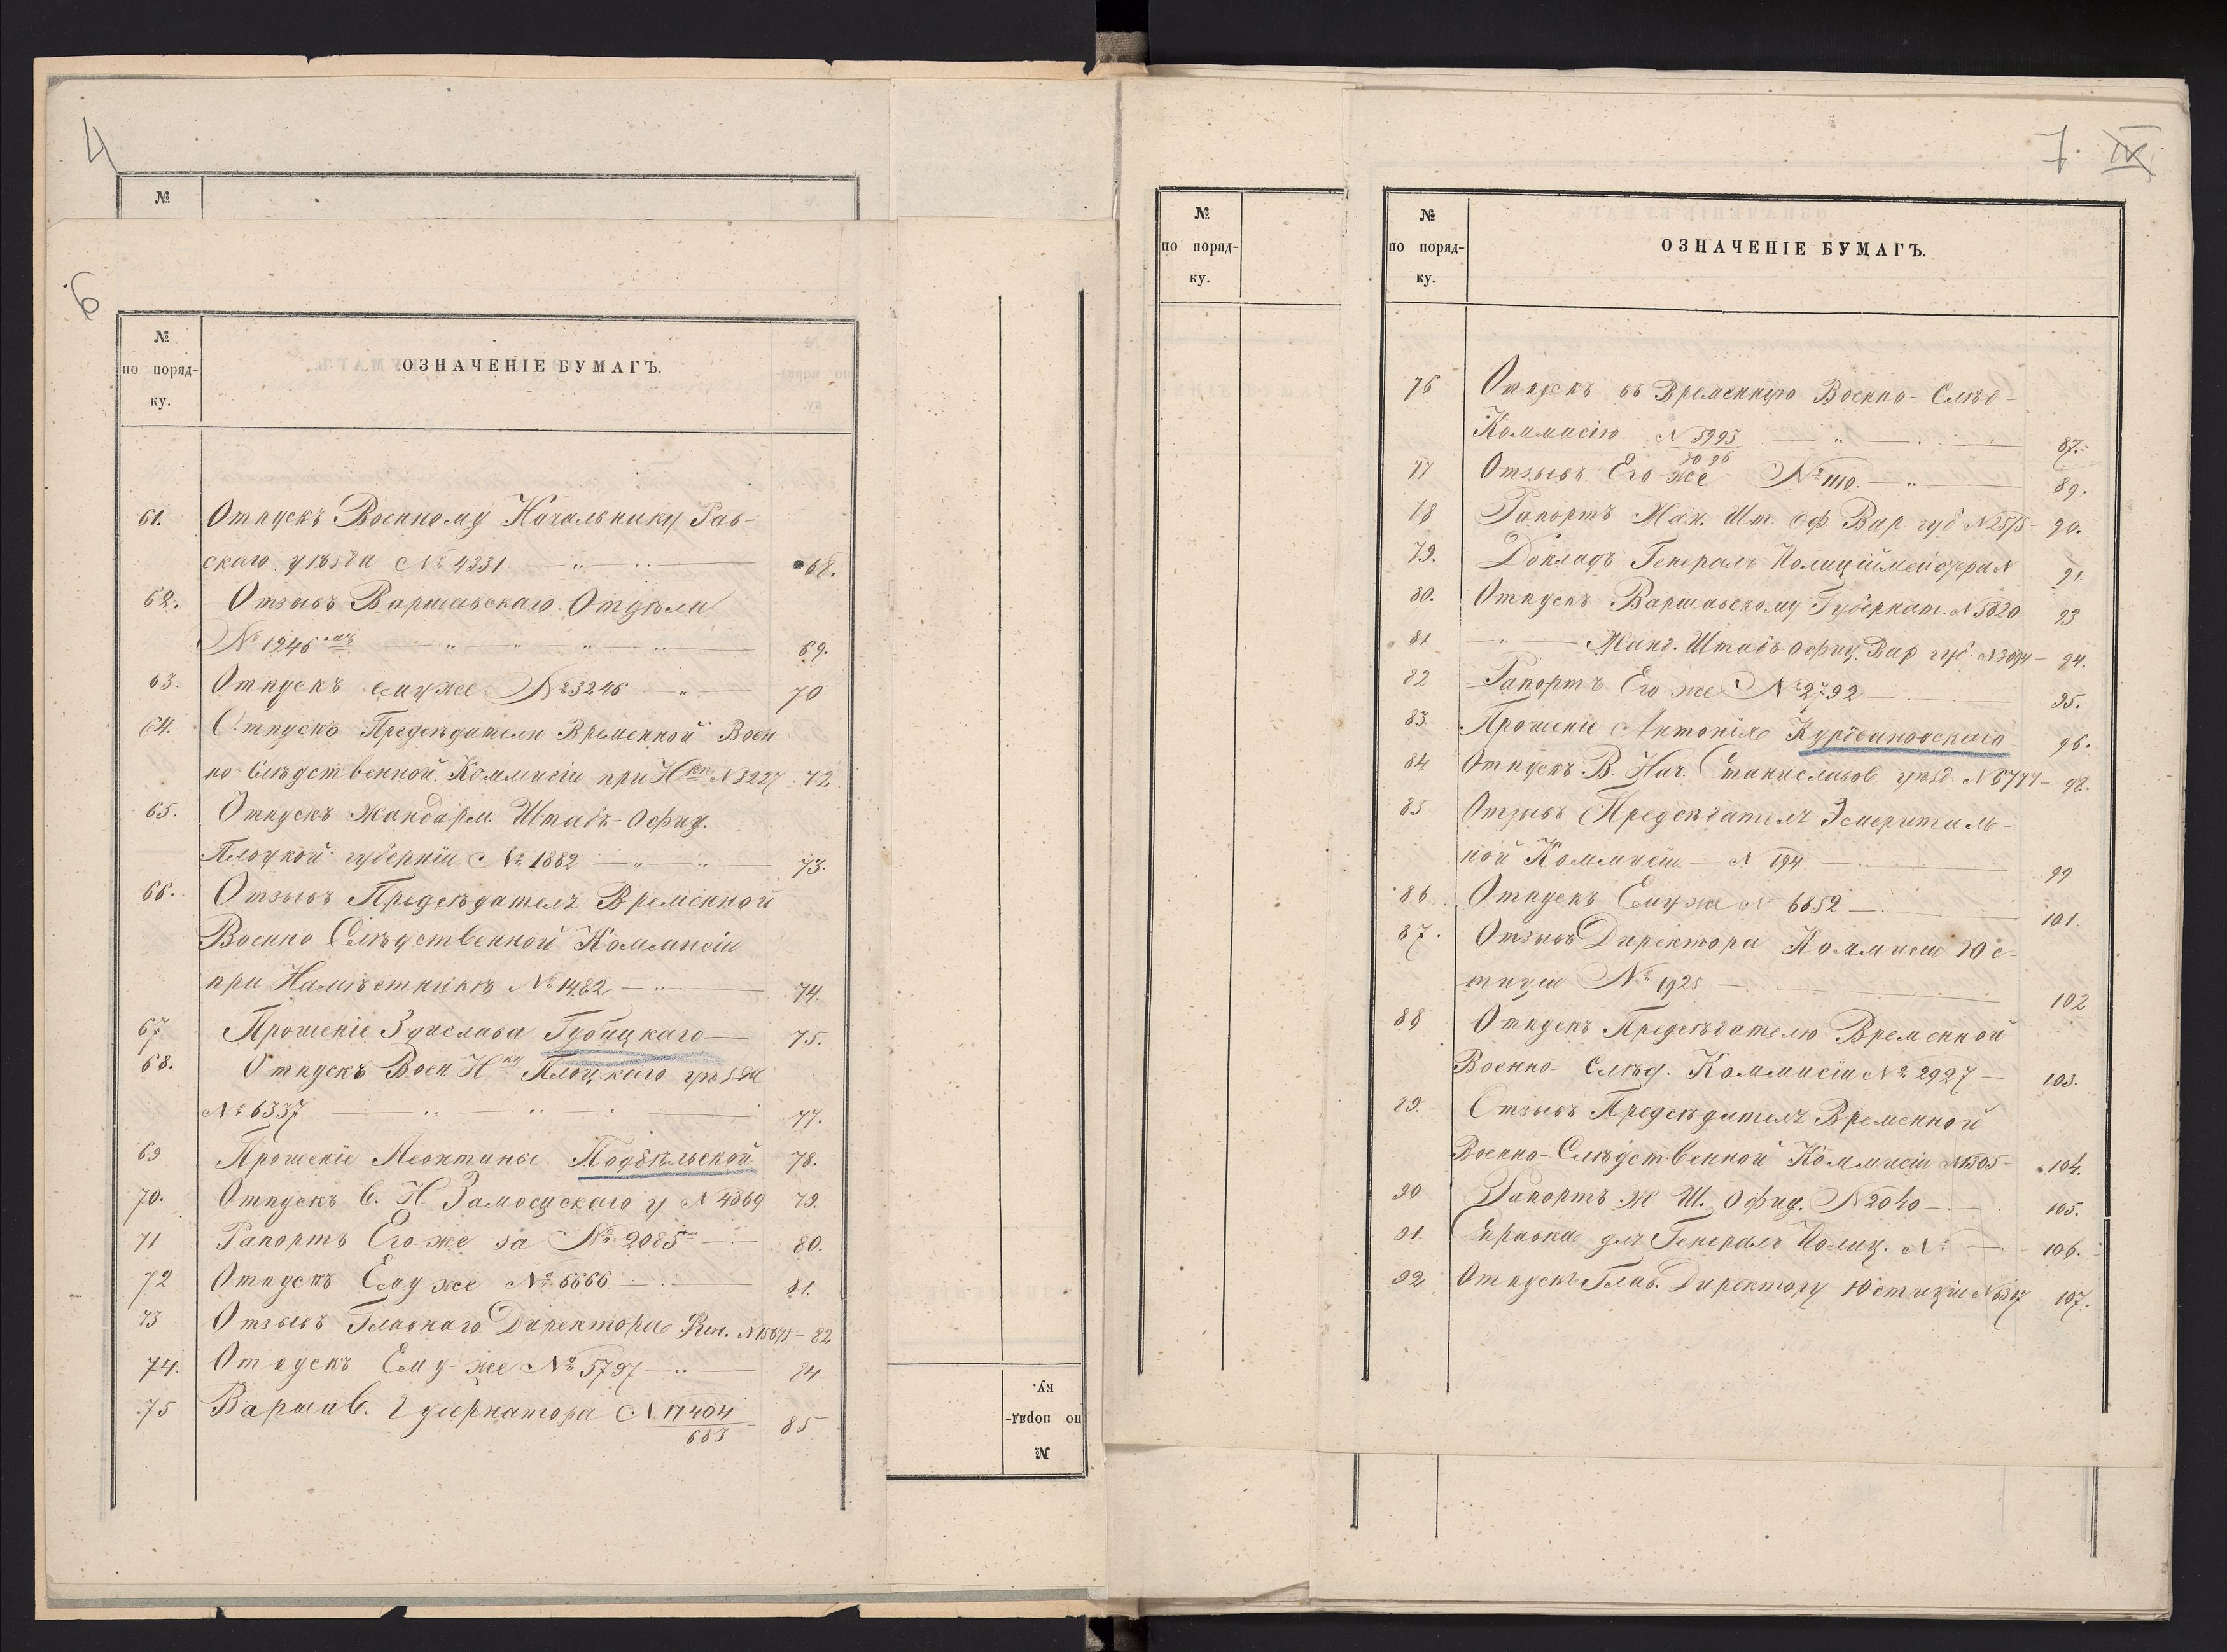 4
№
6
№
по поряд-
ку.
ОЗНАЧЕНІЕ БУМАГЪ.
61. Отпускъ Военному Начальнику Рав-
скаго уѣзда № 4331 68.
62. Отзывъ Варшавскаго Отдѣла
№ 1246 69.
63. Отпускъ ему же № 3246 70
64. Отпускъ Предсѣдателю Временной Воен
но Слѣдственной Коммисіи при Н № 3227 72
65. Отпускъ Жандарм. Штабъ-Офиц.
Плоцкой губерніи № 1882 73.
66. Отзывъ Предсѣдателя Временной
Военно Слѣдственной Коммисіи
при Намѣстникѣ № 1482 74.
67 Прошеніе Здислава 75.
68. Отпускъ Воен Нку Плоцкаго уѣзда
№ 6337 77.
69 Прошеніе Леонтины Подбѣльской 78.
70. Отпускъ В. Н. Замосцскаго у № 4869 79.
71 Рапортъ Его-же за № 2085 80.
72 Отпускъ Ему же № 6666 81.
73 Отзывъ Главнаго Директора Фин. 82
74. Отпускъ Ему-же № 5797 84
75 Варшав. Губернатора № 17404/683 85
ку.
по поряд-
№
№
по поряд-
ку.
7. IX
№
по поряд-
ку.
ОЗНАЧЕНІЕ БУМАГЪ.
76 Отпускъ въ Временную Военно-Слѣд-
Коммисію № 5993/3096 87.
77 Отзывъ Его-же № 1110. 89.
78 Рапортъ Жан. Шт. Оф Вар губ № 2575 90.
79. Докладъ Генералъ Полиціймейстера № 91
80. Отпускъ Варшавскому Губернат. № 5820 93
81 Жанд. Штабъ офиц. Вар губ. 94.
82 Рапортъ Его же № 2792 95.
83 Прошеніе Антонія Курдвановскаго 96.
84 Отпускъ В. Нач. Станиславов. уѣзд. № 6777 98.
85 Отзывъ Предсѣдателя Эмериталь-
ной Коммисіи № 194 99
86. Отпускъ Ему же № 6852 101.
87. Отзывъ Директора Коммисіи Юс-
тиціи № 1925 102
88 Отпускъ Предсѣдателю Временной
Военно-Слѣд. Коммисіи № 2927 103.
89. Отзывъ Предсѣдателя Временной
Военно-Слѣдственной Коммисіи № 1305 104.
90 Рапортъ Ж Ш. Офиц. № 2040 105.
91. Справка для Генералъ Полиц. № 106.
92 Отпускъ Глав. Директору Юстиціи 107.